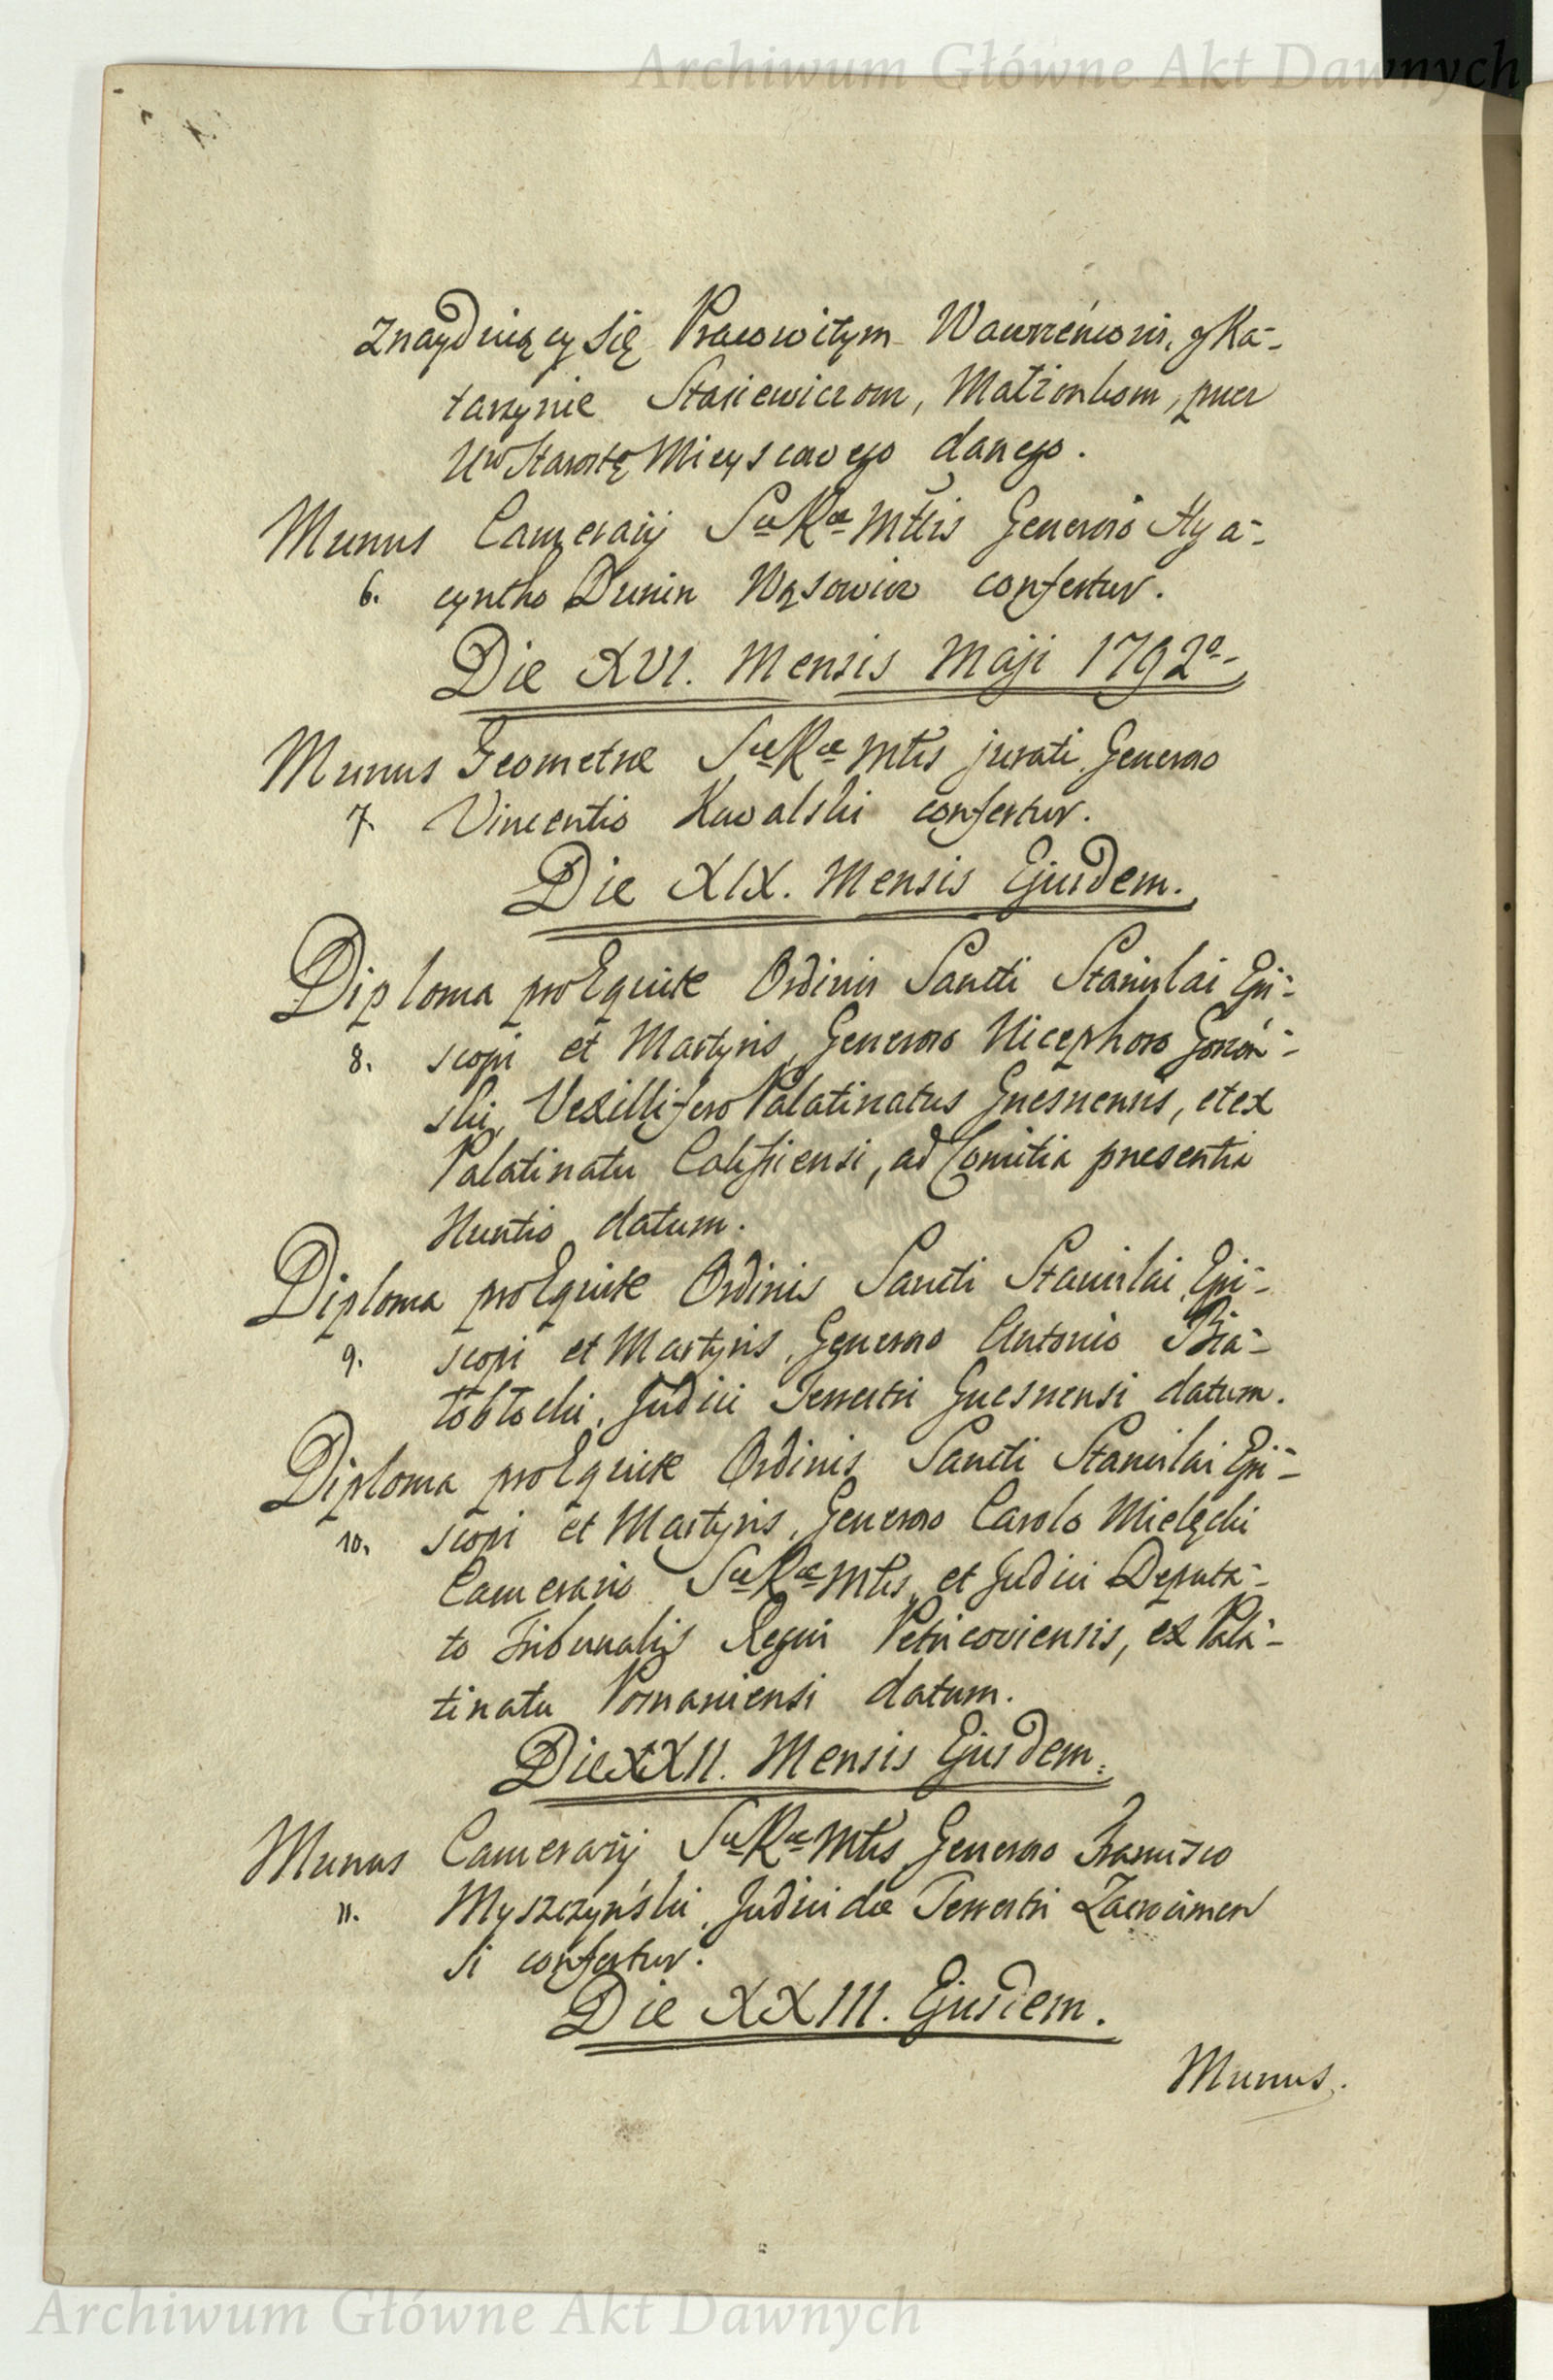 Archiwum Główne Akt Dawnych
Znayduiący się Pracowitym Wawrzeńcowi, y Ka-
tarzynie Stasiewiczom, Małżonkom, przez
Ur Starostę Mieyscowego danego.
Munus Camerarij Sæ Ræ Mttis Generoso Hya-
6. cyntho Dunin Wąsowicz confertur.
Die XVI. Mensis Maji 1792o
Munus Geometræ Sæ Ræ Mtis jurati Generoso
7. Vincentio Kowalski confertur.
Die XIX. Mensis Ejusdem.
Diploma pro Equite Ordinis Sancti Stanislai Epi-
8. scopi et Martyris, Generoso Nicephoro Gorzeń-
ski, Vexillifero Palatinatus Gnesnensis, et ex
Palatinatu Calissiensi, ad Comitia præsentia
Nuntio datum.
Diploma pro Equite Ordinis Sancti Stanislai Epi-
9. scopi et Martyris, Generoso Antonio Bia-
łobłocki, Judici Terrestri Gnesnensi datum.
Diploma pro Equite Ordinis Sancti Stanislai Epi-
10. scopi et Martyris, Generoso Carolo Mielęcki
Camerario Sæ Ræ Mtis, et Judici Deputa-
to Tribunalis Regni Petricoviensis, ex Pala-
tinatu Posnaniensi datum.
Die XXII. Mensis Ejusdem.
Munus Camerarij Sæ Ræ Mtis Generoso Francisco
11. Myszczyński, Judici Terrestri
si confertur.
Die XXIII. Ejusdem.
Munus.
Archiwum Główne Akt Dawnych